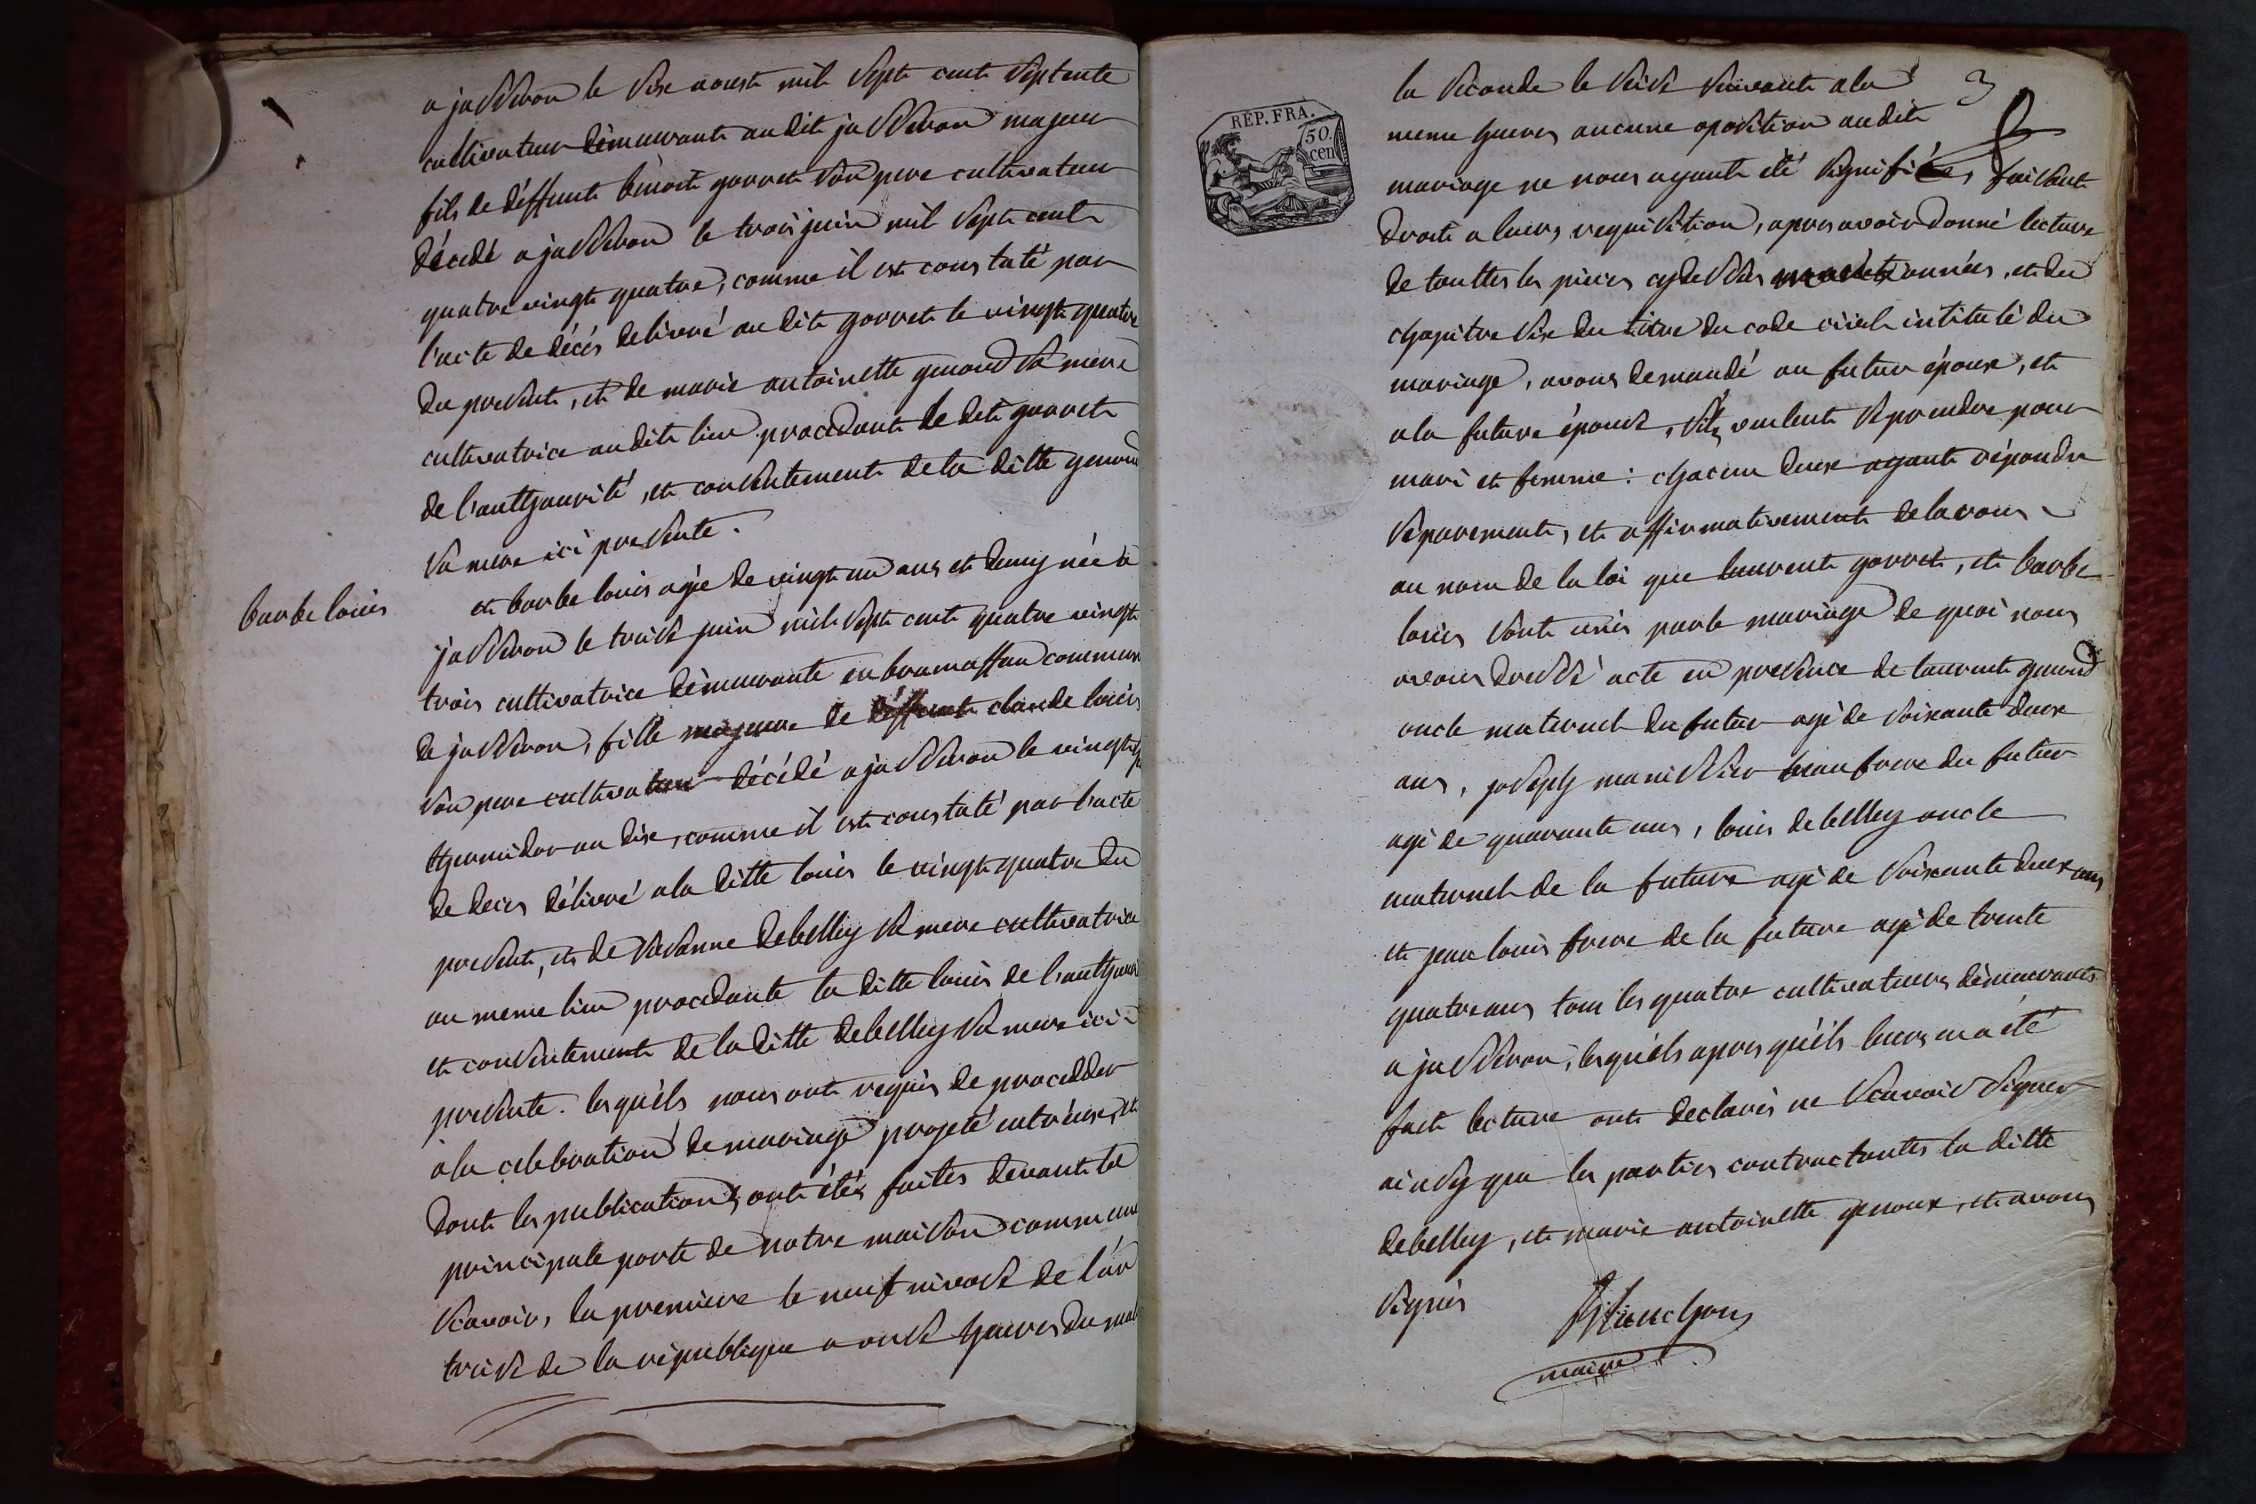 a jasseron le six aoust mil sept cent septente
cultivateur demeurant audit jasseron majeur
fils de déffunt bénoit gorret son pere cultivateur
décédé a jasseron le trois juin mil sept cent
quatre vingt quatre, comme il est constaté par
l'acte de décés delivré au dit gorret le vingt quatre
du present, et de marie antoinette genoud sa mere
cultivatrice au dit lieu procedant le dit gorret
de l'authourité, et consentement de la ditte genoud
sa mere ici presente.
barbe louis
et barbe louis agée de vingt un ans et demy née a
jasseron le treise juin mil sept cent quatre vingt
trois cultivatrice démeurante en bramaffan commune
de jasseron, fille majeure de déffunt claude louis
son pere cultivateur décédé a jasseron le vingt
thermidor an dix, comme il est constaté par l'acte
de deces délivré a la ditte louis le vingt quatre du
present, et de susanne debelley sa mere cultivatrice
au meme lieu procedante la ditte louis de l'authouri
et consentement de la ditte debelley sa mere ici
presente. lesquéls nous ont requis de procedder
a la celebration de mariage projeté entr'eux, et
dont les publications ont étés faites devant la
principale porte de notre maison commune
scavoir, la premiere le neuf nivose de l'an
treise de la république a onse heures du mat
3
REP. FRA.
50.
cen
la seconde le seise suivant a la
meme heures aucune oposition au dit
mariage ne nous ayant été signifiées, faisant
droit a leurs requisition, apres avoir donné lecture
de touttes les pieces cydessus mentionnées, et du
chapitre six du titre du code civil intitulé du
mariage, avons demandé au futur époux, et
a la future épouse, s'ils veulent se prendre pour
mari et femme : chacun deux ayant répondu
séparement, et affirmativement declarons
au nom de la loi que laurent gorret, et barbe
louis sont unis par le mariage de quoi nous
avons dressé acte en presence de laurent genoud
oncle maternel du futur agé de soixante deux
ans, joseph manissier beau frere du futur
agé de quarante ans, louis debelley oncle
maternel de la future agé de soixante deux ans
et jean louis frere de la future agé de trente
quatre ans tous les quatre cultivateurs démeurants
a jasseron, lesquéls apres qu'éls leurs en a été
fait lecture ont declarés ne scavoir signer
ainsy que les parties contractantes la ditte
debelley, et marie antoinette genoux, et avons
signés
maire